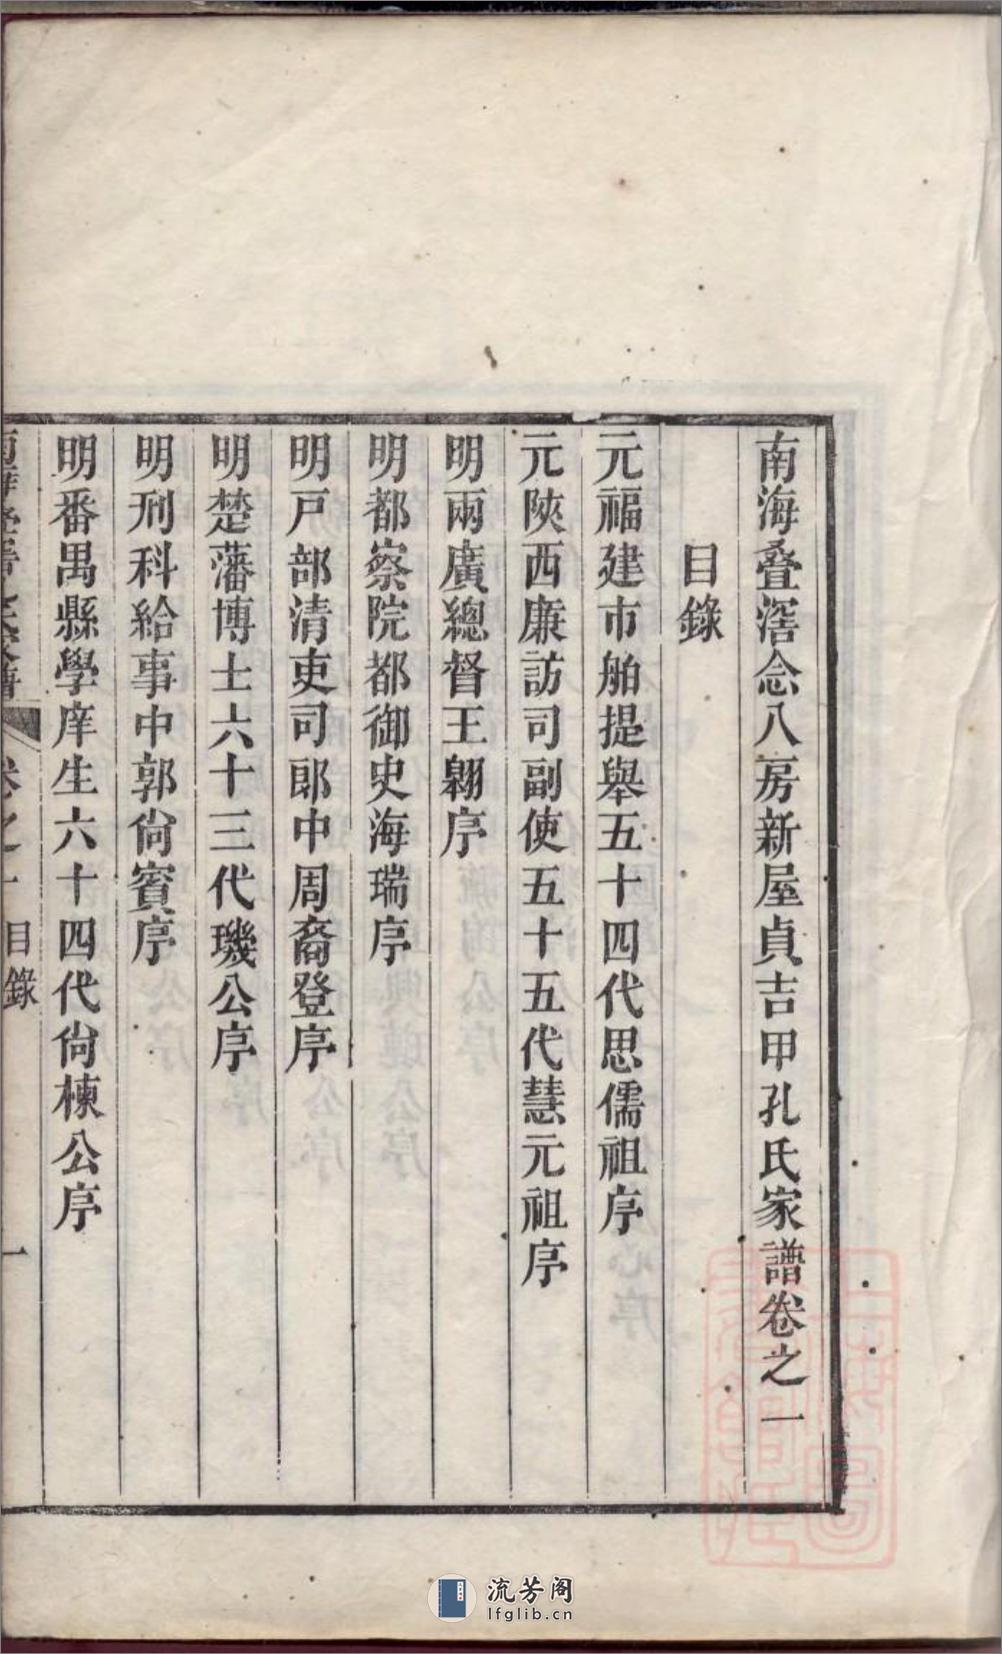 南海叠滘念八房新屋貞吉甲孔氏家譜卷之一
目錄
元福建市舶提舉五十四代思儒祖序
元陝西廉訪司副使五十五代慧元祖序
明兩廣總督王翱序
明都察院都御史海瑞序
明戸部清吏司郎中周裔登序
明楚藩博士六十三代璣公序
明刑科給事中郭尙賓序
明番禺縣學庠生六十四代尙棟公序
卷之一 目錄 一
流芳阁
lfglib.cn